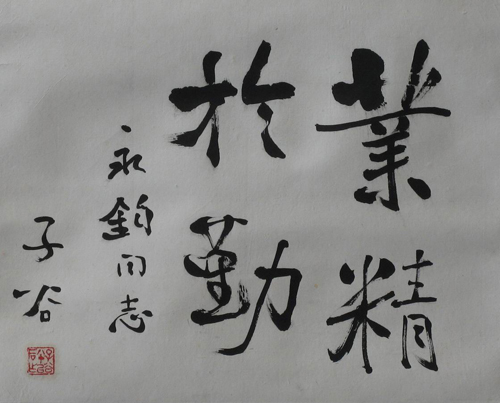 業精
於勤
永鈞同志
子谷